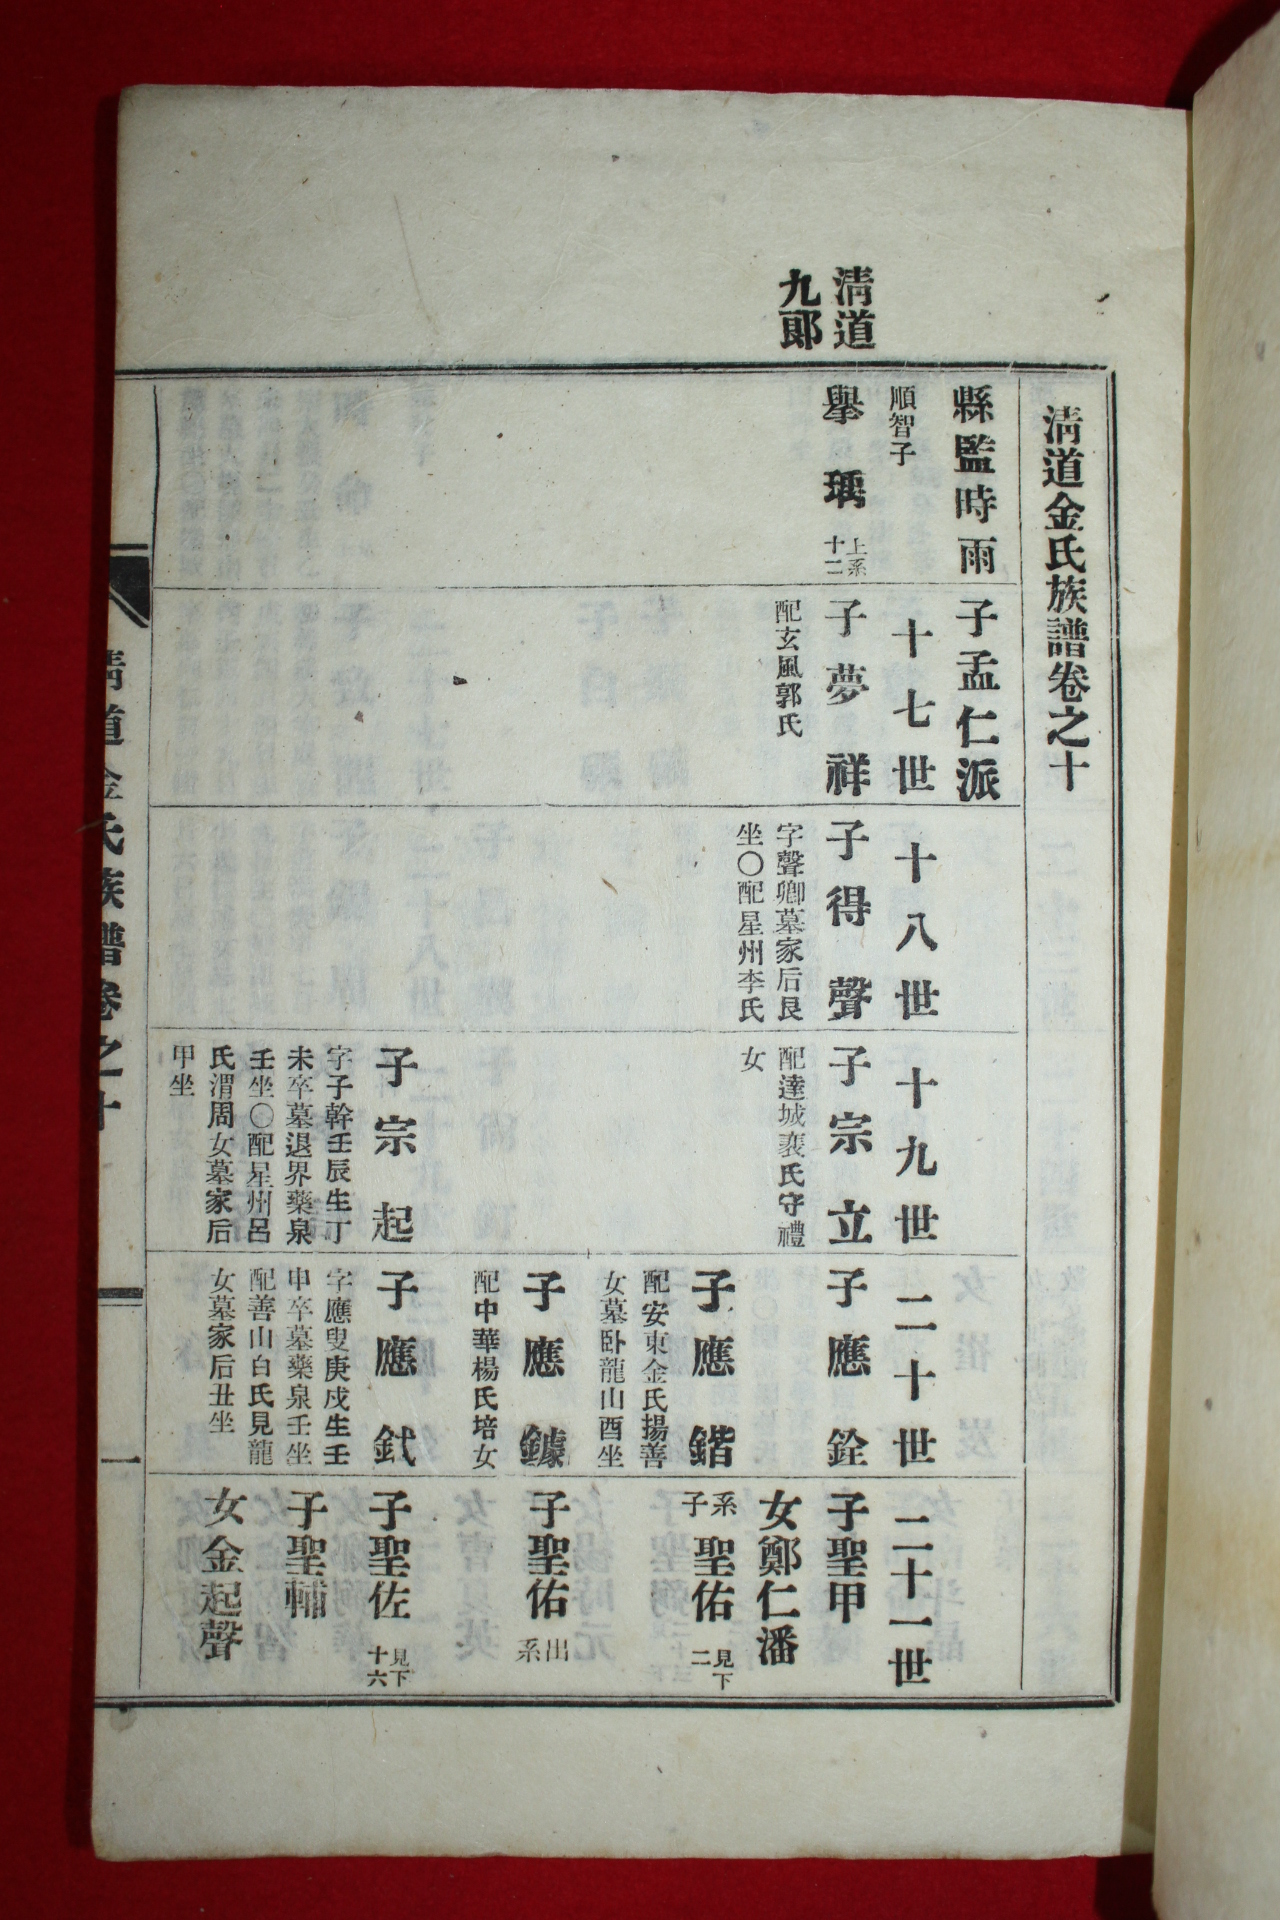 淸道
九郞
淸道金氏族譜卷之十
縣監時雨
順智子
擧瑀
上系
十二
子孟仁派
十七世
子夢祥
配玄風郭氏
十八世
子得聲
字聲卿墓家后艮
坐〇配星州李氏
十九世
子宗立
配達城裵氏守禮
女
子宗起
字子幹壬辰生丁
未卒墓退界藥泉
壬坐〇配星州呂
氏渭周女墓家后
甲坐
二十世
子應銓
子應鍇
配安東金氏揚善
女墓卧龍山酉坐
子應鐻
配中華楊氏培女
子應鉽
字應叟庚戌生壬
申卒墓藥泉壬坐
配善山白氏見龍
女墓家后丑坐
二十一世
子聖甲
女鄭仁潘
系
子
聖佑
見下
二
子聖佑
出
系
子聖佐
見下
十六
子聖輔
女金起聲
淸道金氏族譜卷之十
一